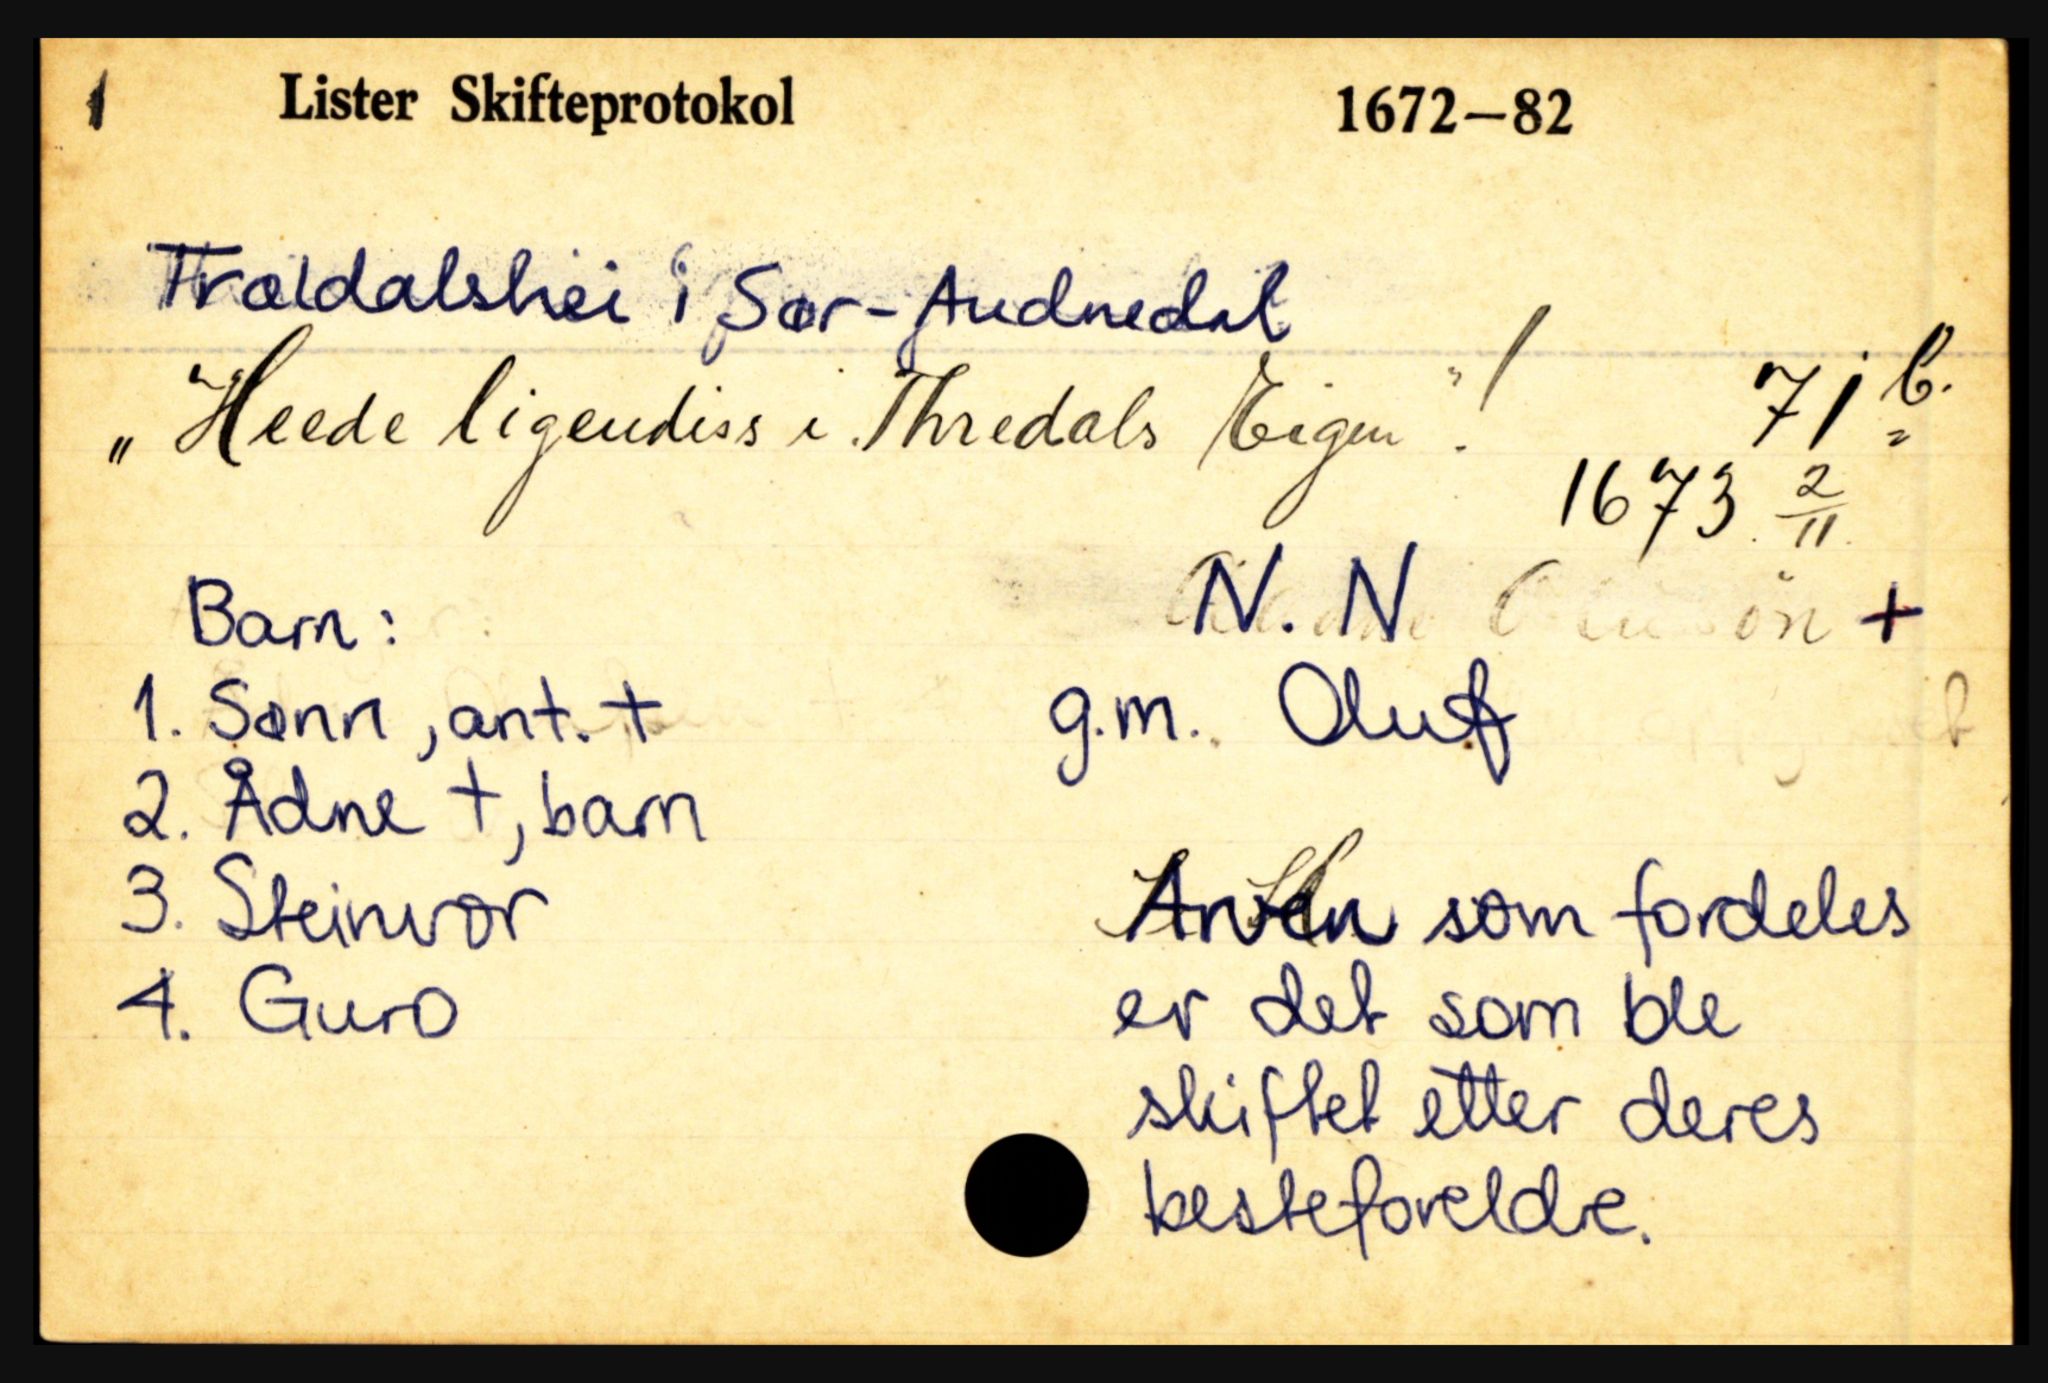 1 Lister Skifteprotokol 1672–82
Trældalshei i Sør-Audnedal
„Heede ligendiss i Thredals Eigen". ! 71 b.
1673 2/11
N. N +
Barn:
1. Sønn, ant. +
g.m. Oluf
2. Ådne +, barn
3. Steinvor
Arven som fordeles
4. Guro
er det som ble
skiftet etter deres
besteforeldre.